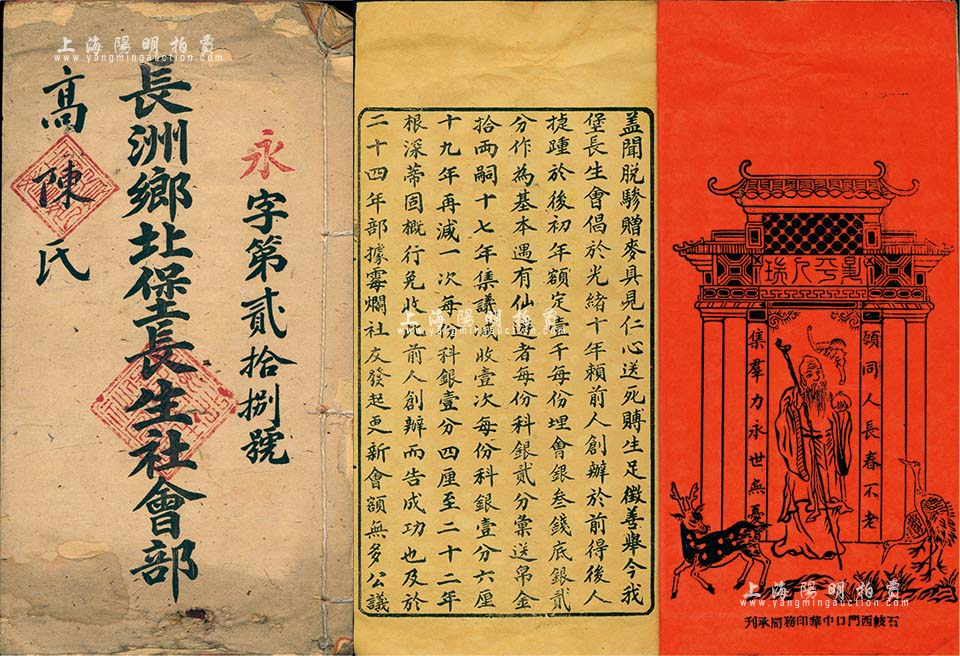 上海陽明拍賣
www.yangmingauction.com
永字第貳拾捌號
長洲鄉北堡長生社會部
高陳氏
蓋聞脱驂贈麥具見仁心送死賻生足徵善舉今我
堡長生會倡於光緒十年賴前人創辦於前得後人
捷踵於後初年額定壹千每份埋會銀叁錢底銀貳
分作為基本遇有仙遊者每份科銀貳分彙送帛金
拾両嗣十七年集議減收壹次每份科銀壹分六厘
十九年再減一次每份科銀壹分四厘至二十二年
根深蒂固概行免收此前人創辦而告成功也及於
二十四年部據霉爛社友發起更新會額無多公議
上海陽明拍賣
www.yangmingauction.com
昇平人瑞
願同人長春不老
集羣力永世無憂
石岐西門口中華印務局承刊
上海陽明拍賣
www.yangmingauction.com